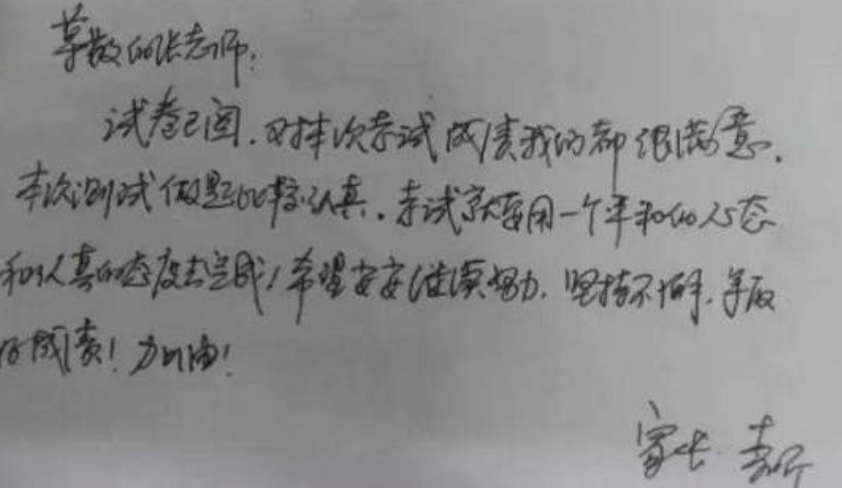 尊敬的张老师:
试卷已阅,对本次考试成绩我们都很满意,
本次测试做题比较认真,考试就要用一个平和的心态
和认真的态度去完成,希望安安继续努力,坚持不懈,争取
好成绩!加油!
家长